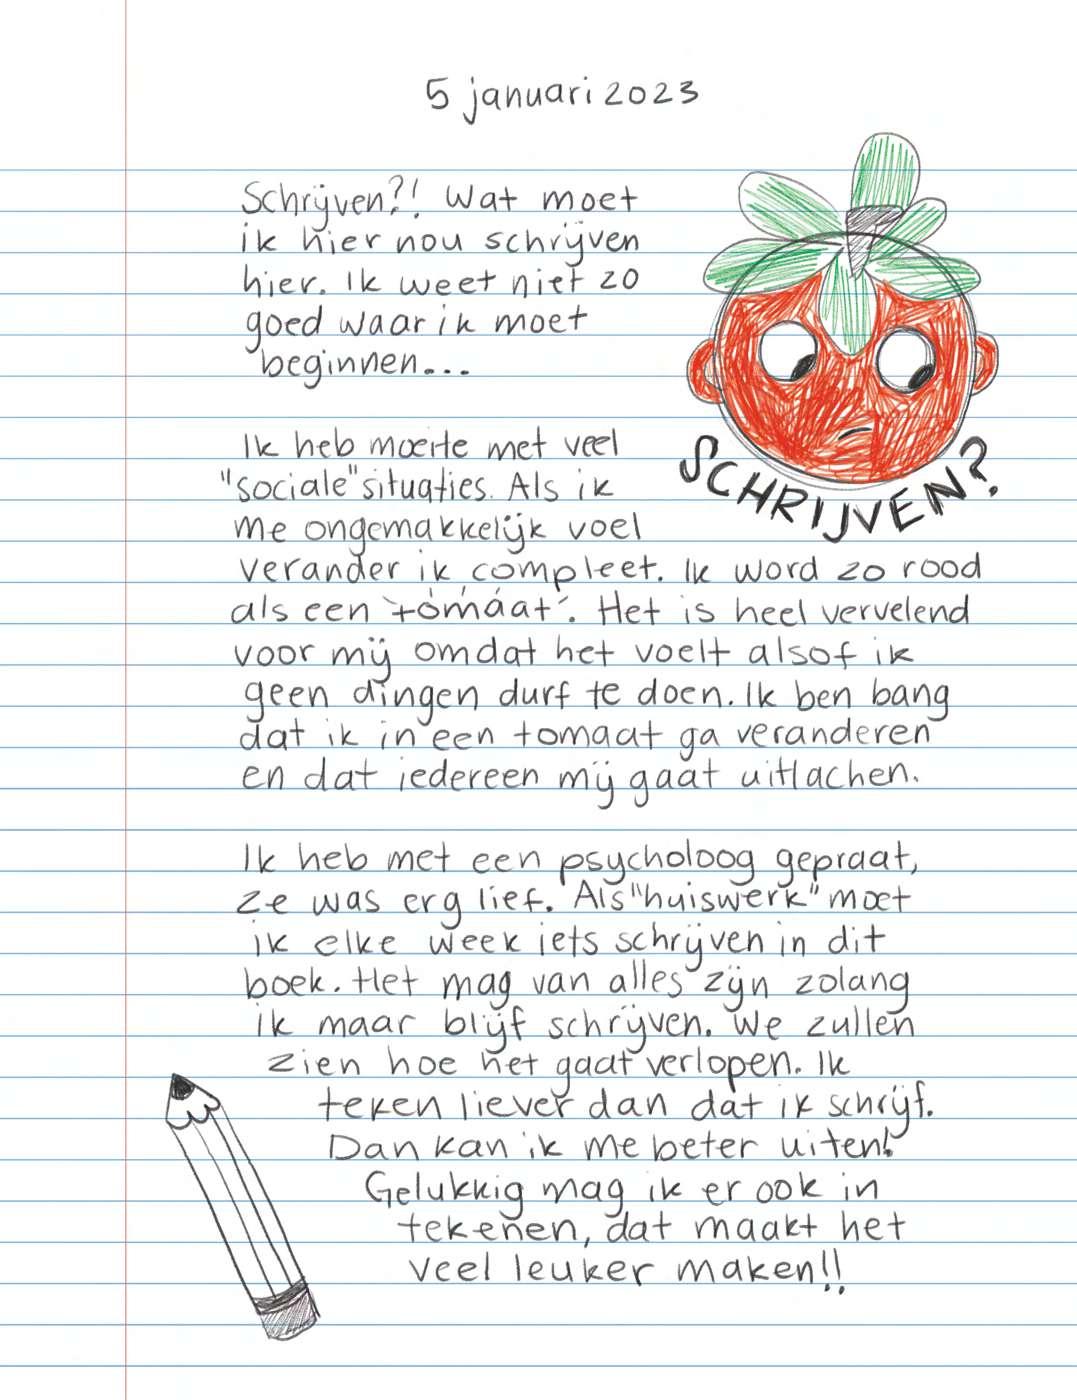 5 januari 2023
Schrijven?! Wat moet
ik hier nou schrijven
hier. Ik weet niet zo
goed waar ik moet
beginnen...
Ik heb moeite met veel
"sociale" situaties. Als ik
me ongemakkelijk voel
verander ik compleet. Ik word zo rood
als een 'tomaat'. Het is heel vervelend
voor mij omdat het voelt alsof ik
geen dingen durf te doen. Ik ben bang
dat ik in een tomaat ga veranderen
en dat iedereen mij gaat uitlachen.
SCHRIJVEN?
Ik heb met een psycholoog gepraat,
ze was erg lief. Als "huiswerk" moet
ik elke week iets schrijven in dit
boek. Het mag van alles zijn zolang
ik maar blijf schrijven. We zullen
zien hoe het gaat verlopen. Ik
teken liever dan dat ik schrijf.
Dan kan ik me beter uiten!
Gelukkig mag ik er ook in
tekenen, dat maakt het
veel leuker maken!!